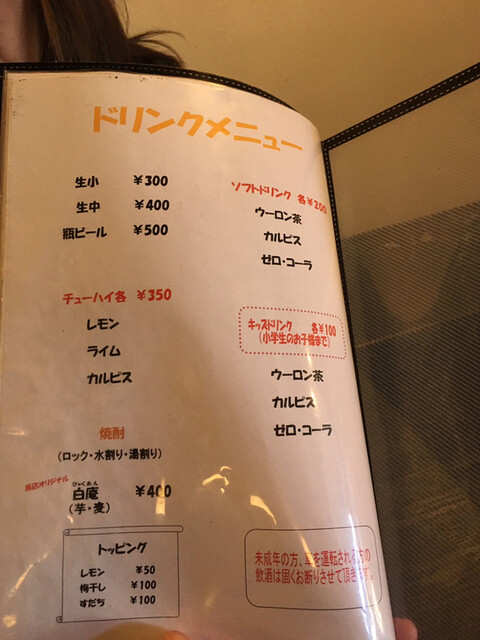 ドリンクメニュー
生小 ¥300
生中 ¥400
瓶ビール ¥500
チューハイ各 ¥350
レモン
ライム
カルピス
焼酎
(ロック・水割り・湯割り)
当店オリジナル
びゃくあん
白庵 ¥400
(芋・麦)
トッピング
レモン ¥50
梅干し ¥100
すだち ¥100
ソフトドリンク 各¥200
ウーロン茶
カルピス
ゼロ・コーラ
キッズドリンク 各¥100
(小学生のお子様まで)
ウーロン茶
カルピス
ゼロ・コーラ
未成年の方、車を運転される方の
飲酒は固くお断りさせて頂きます。